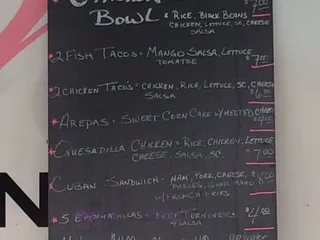 BOWL & RICE, BLACK BEANS 7.00
CHICKEN, LETTUCE, CHEESE
SALSA
2 FISH TACOS - MANGO SALSA, LETTUCE $7.00
TOMATOE
2 CHICKEN TACO'S - CHICKEN, RICE, LETTUCE, SC, CHEESE
SALSA $6.00
AREPAS - SWEET CORN CAKE W/MELTED CHEESE
QUESADILLA CHICKEN - RICE, CHICKEN, LETTUCE
CHEESE, SALSA, SC. 7.00
CUBAN SANDWICH - HAM, PORK, CHEESE,
PICKLES,
W/FRENCH FRIES
5 EMPANADILLAS - BEEF TURNOVERS $4.00
SALSA
N